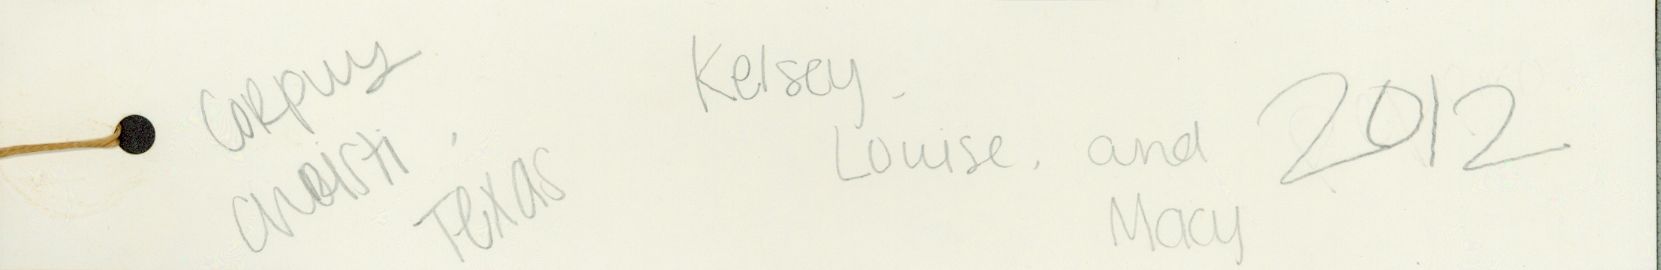 Corpus
Christi,
Texas
Kelsey,
Louise, and
Macy
2012